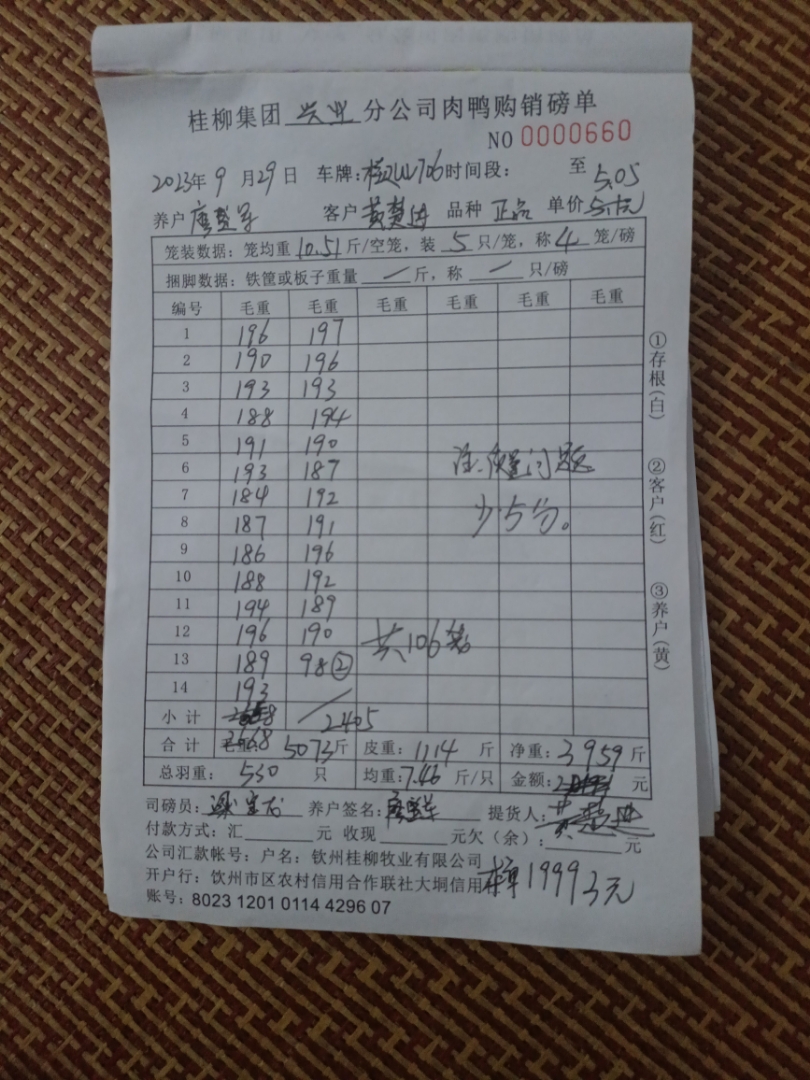 桂柳集团 兴业 分公司肉鸭购销磅单
NO 0000660
2023年 9 月 29 日 车牌: 时间段: 至
5.05
养户 客户 黄楚进 品种 正品 单价
笼装数据: 笼均重 10.51 斤/空笼, 装 5 只/笼, 称 4 笼/磅
捆脚数据: 铁筐或板子重量 / 斤, 称 / 只/磅
编号 毛重 毛重 毛重 毛重 毛重 毛重
1 196 197
2 190 196
3 193 193
4 188 194
5 191 190
6 193 187
7 184 192
8 187 191
9 186 196
10 188 192
11 194 189
12 196 190
13 189 98②
14 193
注: 质量问题
少5分。
共106笼
小计 / 2405
合计 毛重: 2668 5073斤 皮重: 1114 斤 净重: 3959 斤
总羽重: 530 只 均重: 7.46 斤/只 金额: 元
司磅员: 养户签名: 提货人:
付款方式: 汇 元 收现 元欠(余): 元
公司汇款帐号: 户名: 钦州桂柳牧业有限公司
开户行: 钦州市区农村信用合作联社大垌信用
19993元
账号: 8023 1201 0114 4296 07
①存根(白) ②客户(红) ③养户(黄)